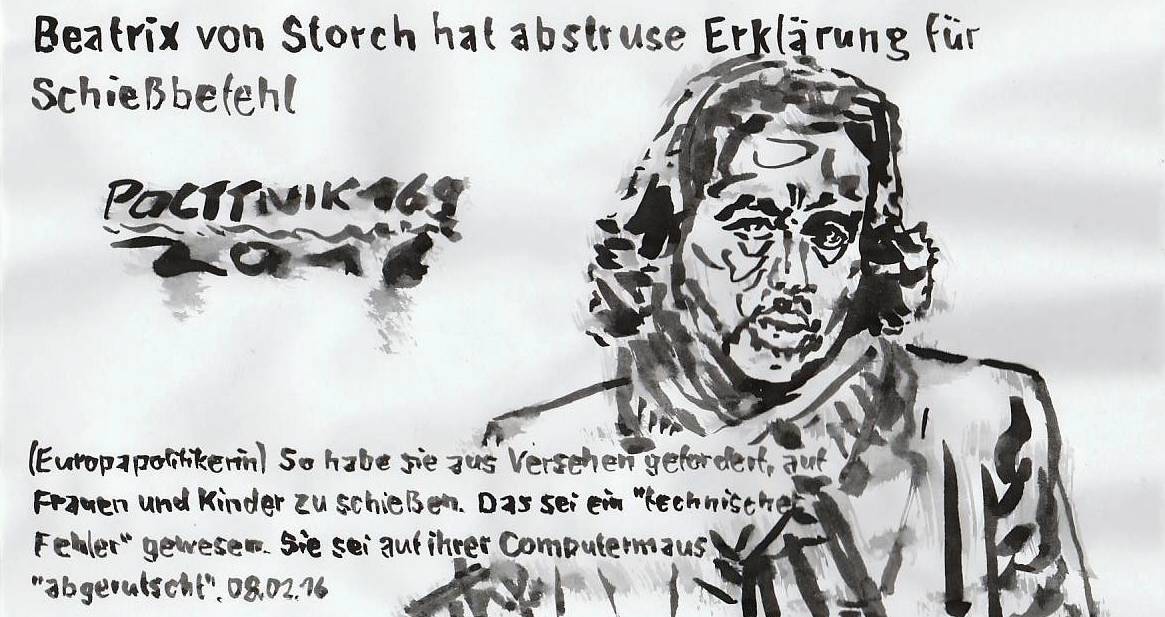 Beatrix von Storch hat abstruse Erklärung für
Schießbefehl
POLITTNIK 169
2016
(Europapolitikerin) So habe sie aus Versehen gefordert, auf
Frauen und Kinder zu schießen. Das sei ein "technischer
Fehler" gewesen. Sie sei auf ihrer Computermaus
"abgerutscht". 08.02.16